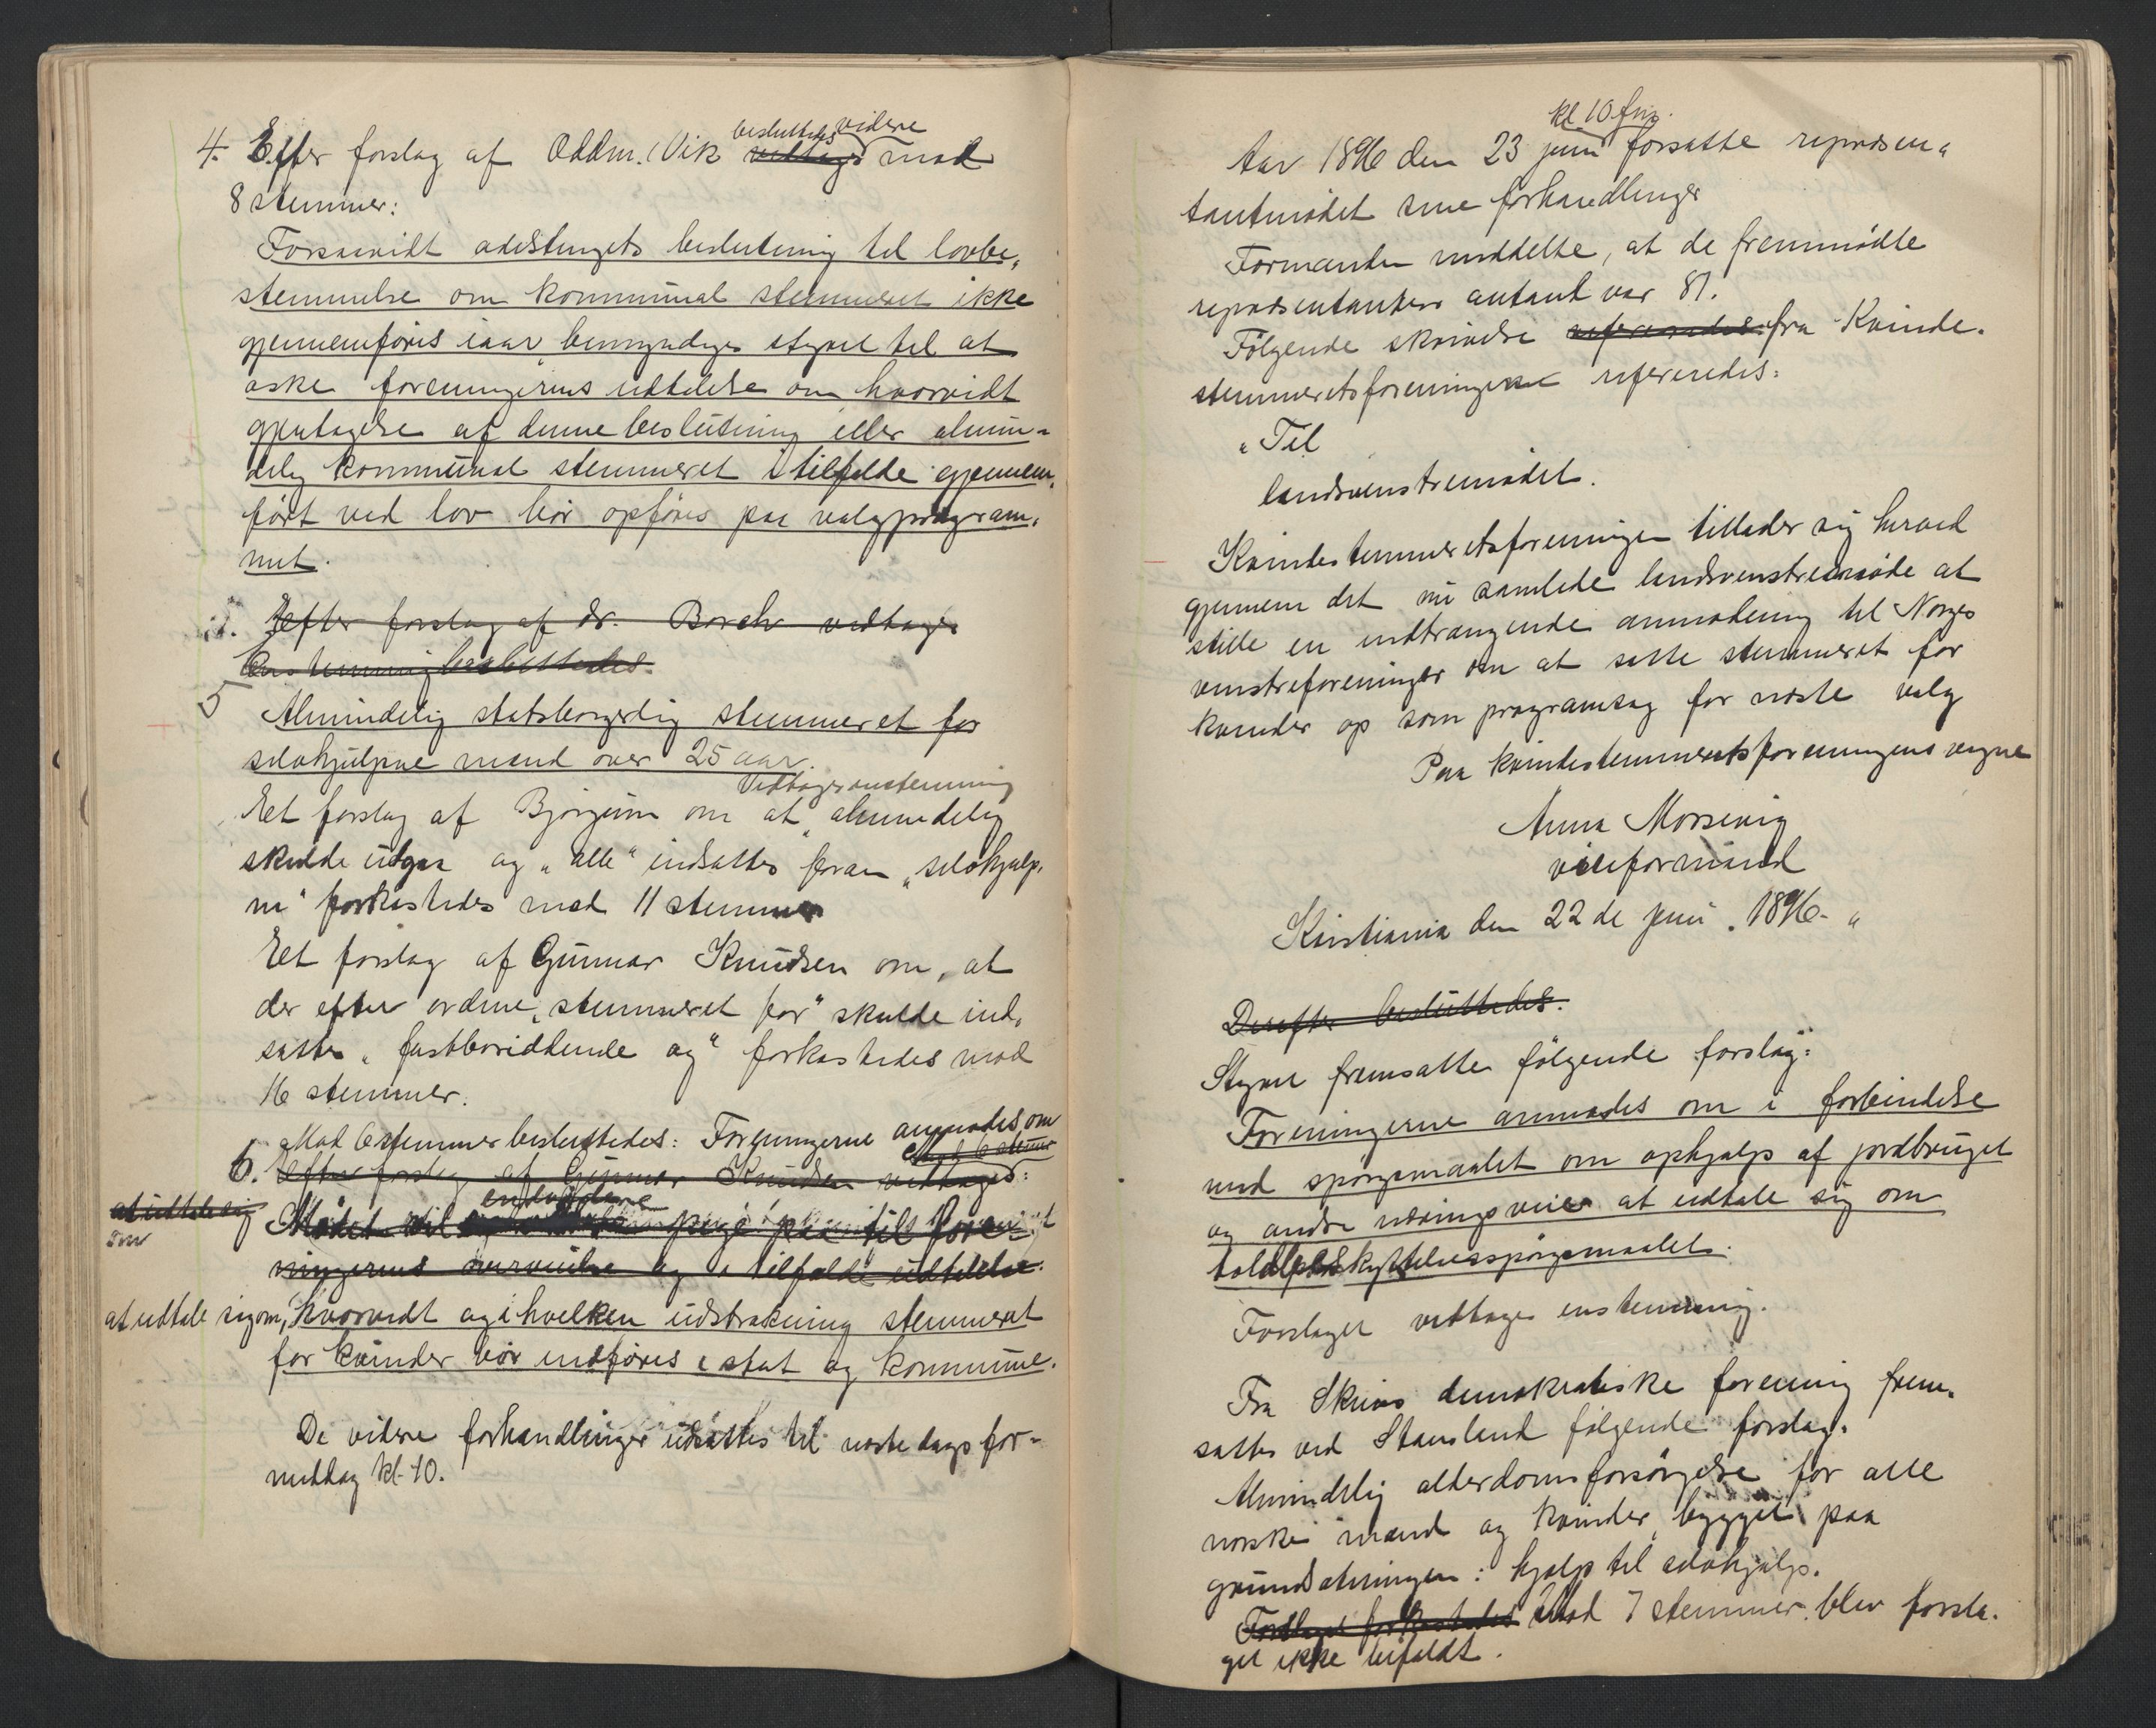 4. Efter forslag af Oddm. Vik besluttedes videre vedtages mod
8 stemmer:
Forsaavidt odelstingets beslutning til lovbe-
stemmelse om kommunal stemmeret ikke
gjennemføres iaar bemyndiges styret til at
æske foreningernes udtalelse om hvorvidt
gjentagelse af denne beslutning eller almin-
delig kommunal stemmeret i tilfælde gjennem-
ført ved lov bør opføres paa valgprogram-
met.
5. Efter forslag af dr. Borch vedtages
Enstemmig besluttedes.
5 Almindelig statsborgerlig stemmeret for
selvhjulpne mænd over 25 aar.
Vedtages enstemmig
Et forslag af Bjørgum om at "almindelig
skulde udgaa og "alle" indsættes foran "selvhjulp-
ne" forkastedes mod 11 stemmer
Et forslag af Gunnar Knudsen om, at
der efter ordene "stemmeret for" skulde ind-
sættes "fastboriddende og" forkastedes mod
16 stemmer.
Mod 6 stemmer besluttedes: Foreningerne anmodes om
Mod 6 stemmer
6. Efter forslag af Gunnar Knudsen vedtages:
at udtale sig om
Mødet vil endvidere pege paa til foreningernes overveielse og i tilfælde udtalelse
at udtale sig om, hvorvidt og i hvilken udstrækning stemmeret
for kvinder bør indføres i stat og kommune.
De videre forhandlinger udsattes til næste dags for-
middag kl. 10.
kl. 10 fm.
Aar 1896 den 23 juni forsatte repræsen-
tantmødet sine forhandlinger
Formanden meddelte, at de fremmødte
repræsentanters antant var 81.
Følgende skrivelse refereredes fra Kvinde-
stemmeretsforeningen refereredes:
"Til
landsvenstremødet.
Kvindestemmeretsforeningen tillader sig herved
gjennem det nu samlede landsvenstremøde at
stille en indtrængende anmodning til Norges
venstreforeninger om at sætte stemmeret for
kvinder op som programsag for næste valg
Paa kvindestemmeretsforeningens vegne
Anna Morsevig
viceformand
Kristiania den 22 de juni. 1896. "
Derefter besluttedes.
Styret fremsatte følgende forslag:
Foreningerne anmodes om i forbindelse
med spørgsmaalet om ophjælp af jordbruget
og andre næringsveie at udtale sig om
toldbeskyttelsesspørgsmaalet.
Forslaget vedtages enstemmig.
Fra Skiens demokratiske forening frem-
sattes ved Stousland følgende forslag:
Almindelig alderdomsforsørgelse for alle
norske mænd og kvinder, bygget paa
grundsætningen: hjælp til selvhjælp.
Forslaget forkastedes Mod 7 stemmer blev forsla-
get ikke bifaldt.